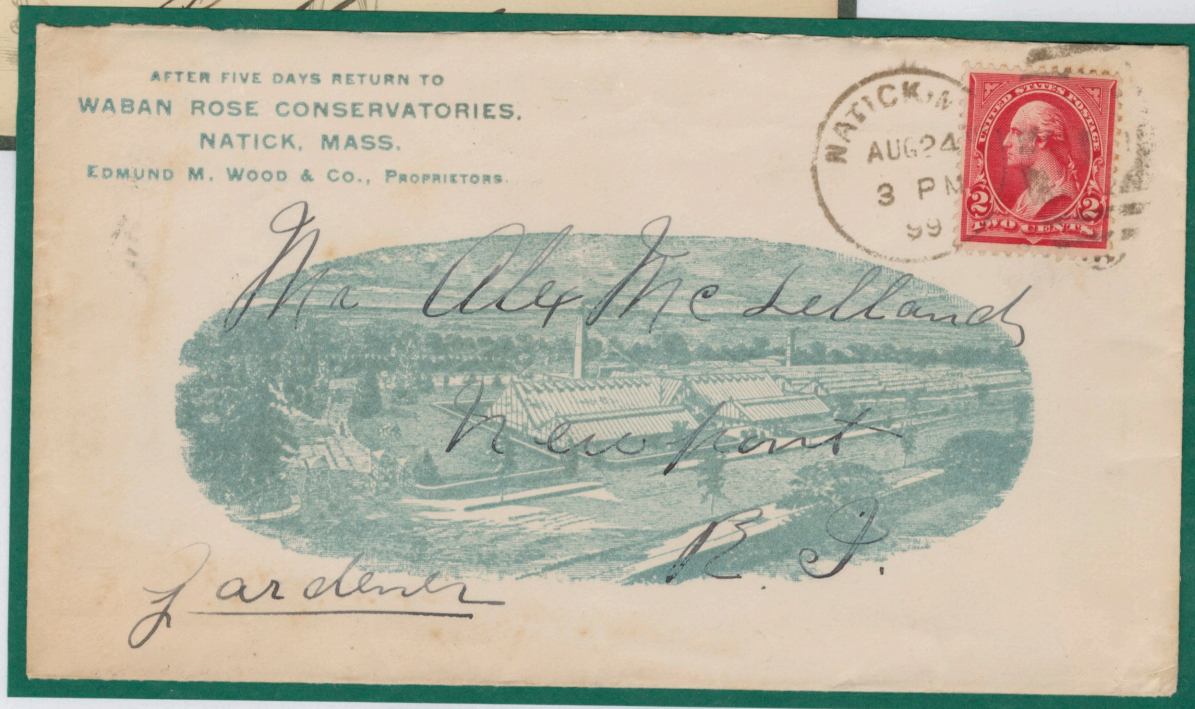 AFTER FIVE DAYS RETURN TO
WABAN ROSE CONSERVATORIES,
NATICK, MASS.
EDMUND M. WOOD & CO., PROPRIETORS.
NATICK, M
AUG 24
3 PM
99
UNITED STATES POSTAGE
2 2
TWO CENTS
Mr Alex McLelland
Newport
R. I.
Gardener